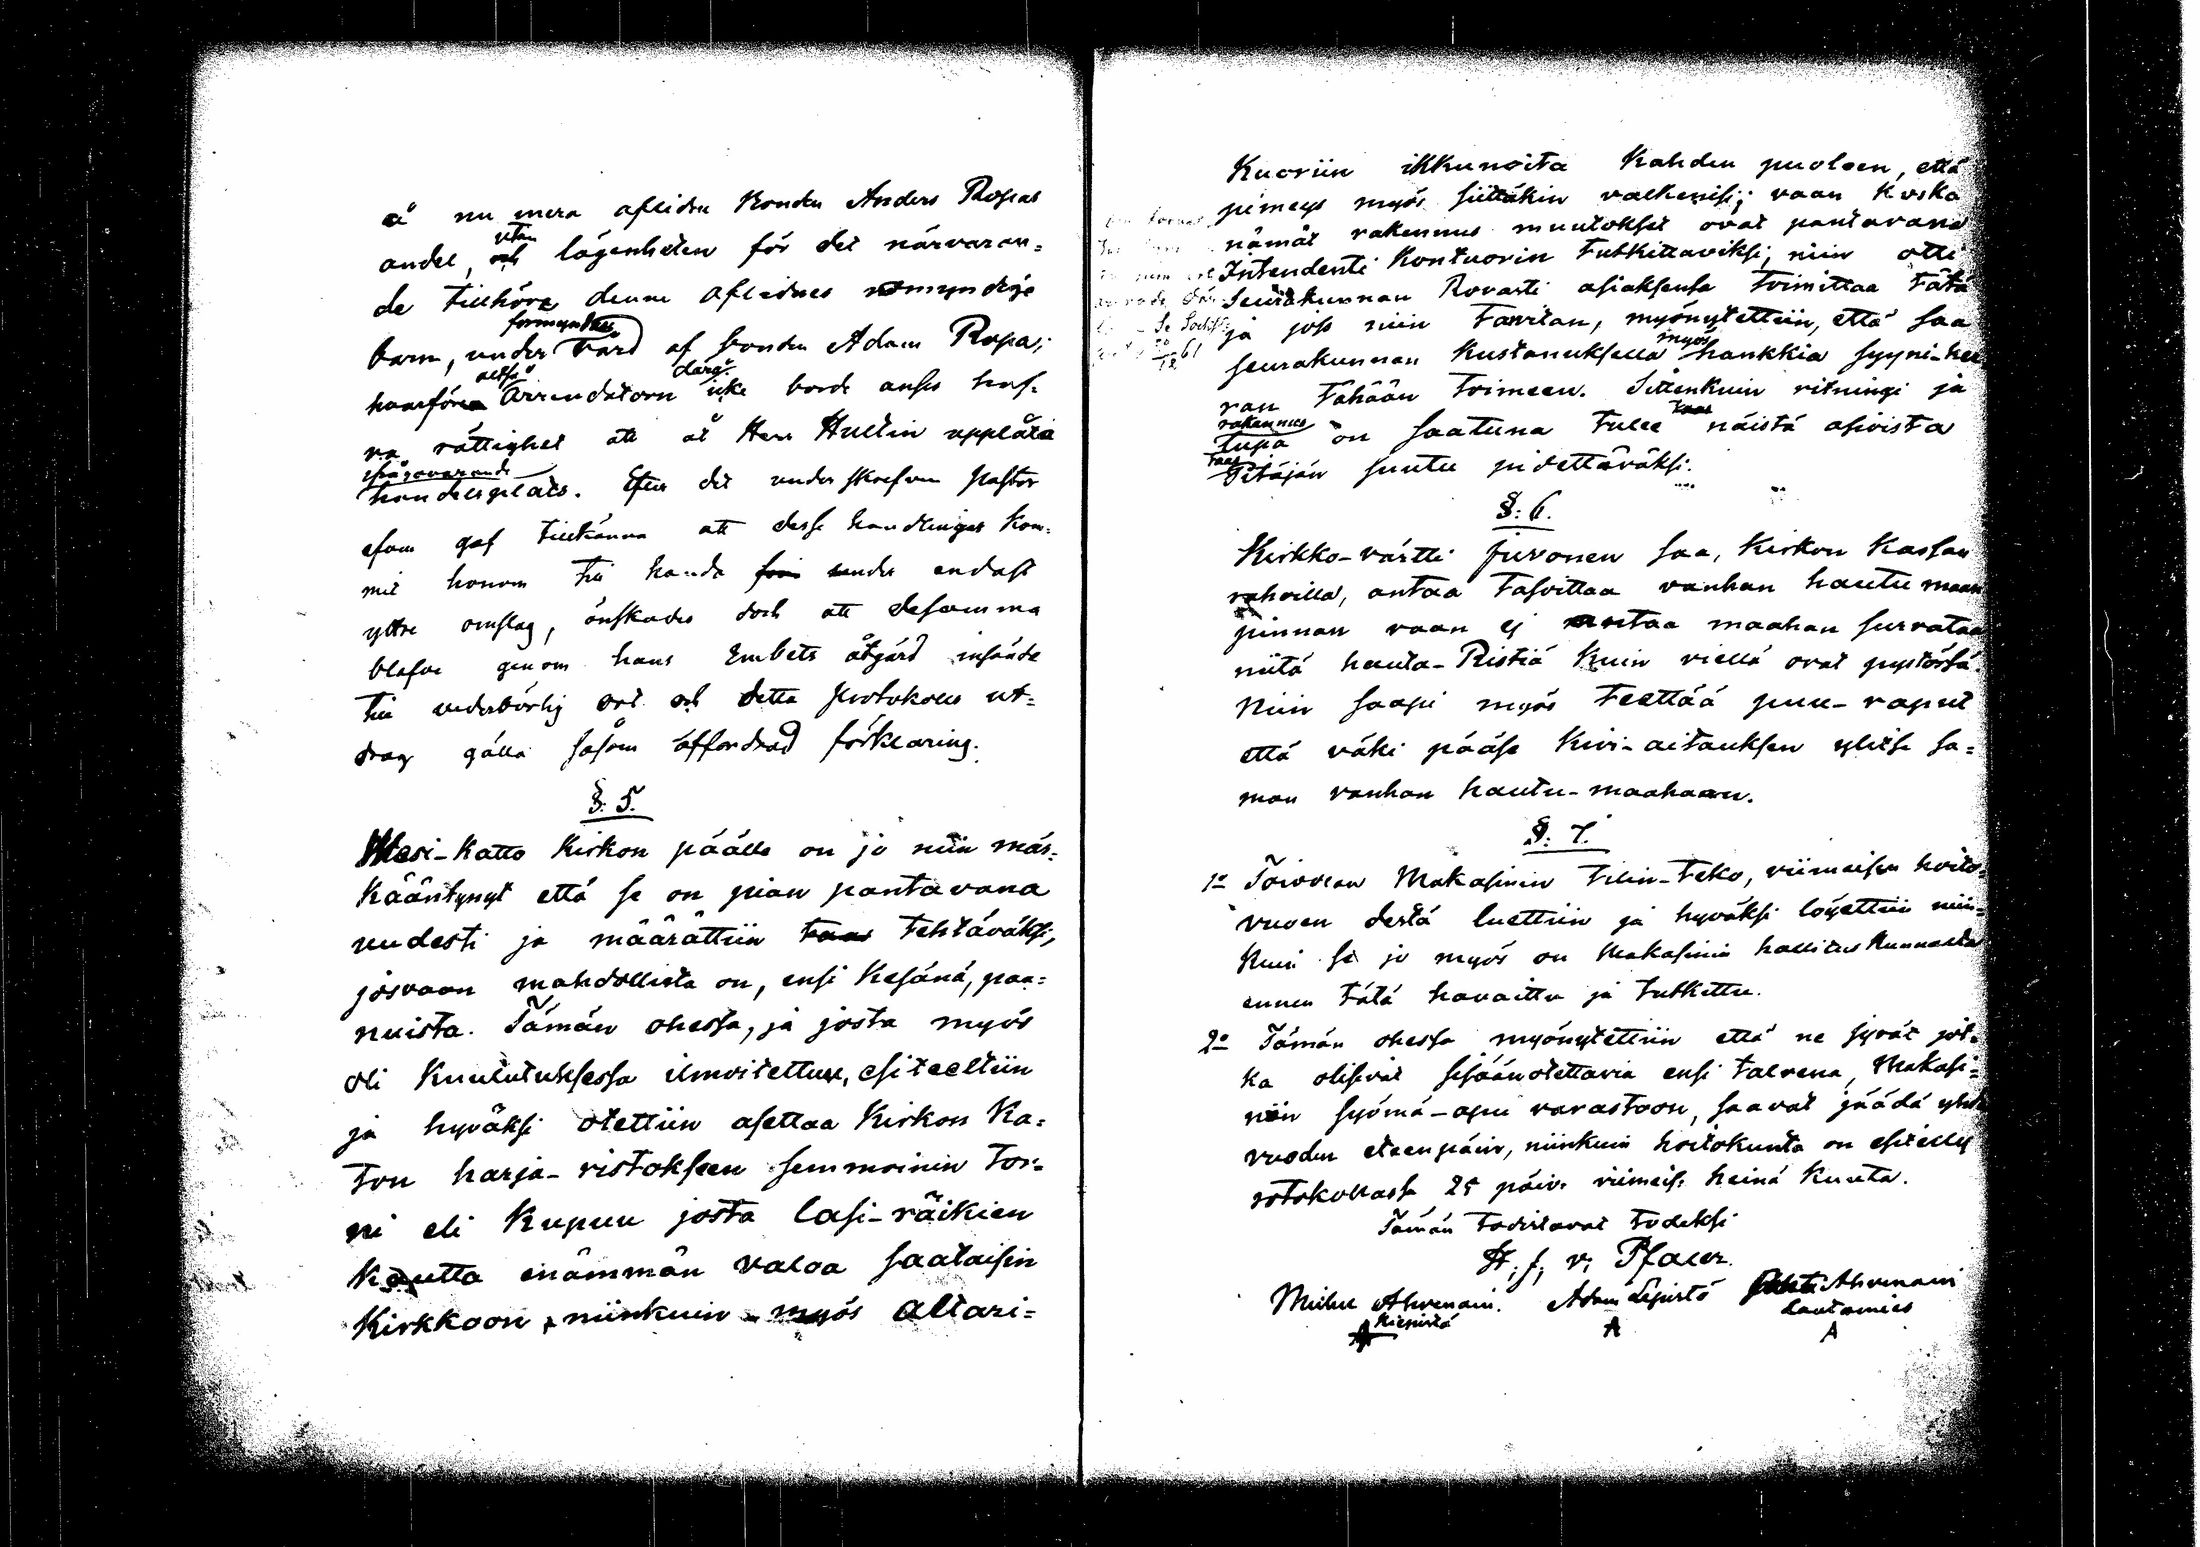 å nu mera aflidne bonden Anders Ropas
andel, utan lägenheten för det närvaran=
de tillhöra denne aflidnes omyndige
barn, under förmyndare vård af bonden Adam Ropas;
hvarföre altså Arrendatorn icke borde anses haf=
va rättighet att åt Herr Hultin upplåta
ifrågavarande
handelsplats. Efter det underskrefven Pastor
efven gaf tillkänna att desse handlingar kom=
mit honom till handa under endast
yttre omslag, önskades doch att desamma
blefve genom hans Embets åtgärd insände
till vederbörlig ort och detta protokolls ut=
drag gälla såsom affordrad förklaring.
§. 5.
Wesi-katto Kirkon päälle on jo niin mär=
kääntynyt että se on pian pantavana
uudesti ja määrättiin taas tehtäväksi,
josvaan mahdollista on, ensi kesänä, paa=
nuista. Tämän ohessa, ja josta myös
oli kuulutuksessa ilmoitettu, esiteeltiin
ja hyväksi otettiin asettaa Kirkon Ka=
ton harja-ristokseen semmoinen tor=
ni eli kupuu josta lasi-räikien
kautta enämmän valoa saataisiin
Kirkkoon, niinkuin myös altari=
Kuoriin ikkunoita kahden puoleen, että
pimeys myös siittäkin valkenisi; vaan koska
nämät rakennus muutokset ovat pantavana
Intendenti Kontuorin tutkittaviksi, niin otti
Seurakunnan Rovasti asiaksensa toimittaa tätä
ja jos niin tarvitan, myönytettiin, että saa
seurakunnan kustanuksella myös hankkia syyni-her
ran tähään toimeen. Sittenkuin ritningi ja
rakennus
lupa on saatuna tulee näistä asioista
taas
Pitäjän suutu pidettäväksi.
§. 6.
Kirkko-värtti Juvonen saa, Kirkon Kassan
rahoilla, antaa tasoittaa vanhan hautu maan
pinnan vaan ej antaa maahan survataa
niitä hauta-Ristiä kuin viellä ovat pystössä.
Niin saapi myös teettää puu-raput
että väki pääse kivi-aitauksen ylitse sa=
man vanhan hautu-maahaan.
§. 7.
1o Toivolan Makasinin tilin-teko, viimeisen hoito
vuoden destä luettiin ja hyväksi löyettiin niin=
kuin se jo myös on Makasinin hallitus kunnalta
ennen tätä havaittu ja tutkittu.
2o Tämän ohessa myönytettiin että ne jyvät jot=
ka olisivat sisäänotettavia ensi talvena, Makasi=
niin syömä-apu varastoon, saavat jäädä yhtä
vuoden eteenpäin, niinkuin hoitokunta on esitelly
rotokollassa 25 päiv. viimeis. heinä kuuta.
Tämän todistavat todeksi
H. J. v; Pfaler.
Mickel Ahvenain. Adam Lepistö Ahvenain
Kiepistä Lautamies
A A A